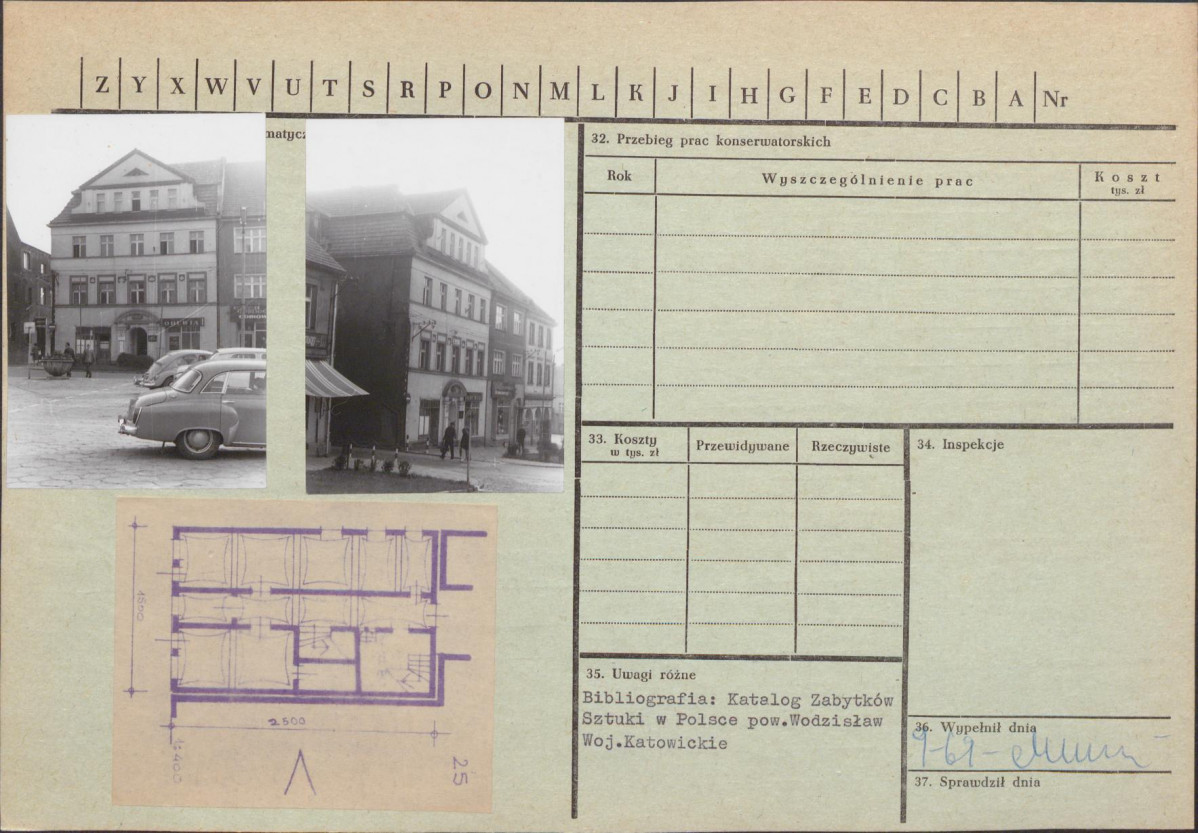 Z Y X W V U T S R P O N M L K J I H G F E D C B A Nr
32. Przebieg prac konserwatorskich
Rok
Wyszczególnienie prac
Koszt
tys. zł
33. Koszty
w tys. zł
Przewidywane
Rzeczywiste
34. Inspekcje
35. Uwagi różne
Bibliografia: Katalog Zabytków
Sztuki w Polsce pow.Wodzisław
Woj.Katowickie
36. Wypełnił dnia
37. Sprawdził dnia
1600
2500
1:400
25